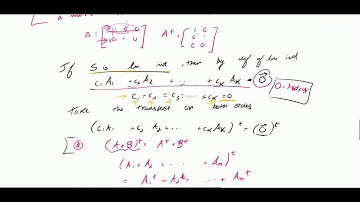 a m
A = [1 0 0 0 1 0] A^t = [1 0 0 1 0 0]
If S is lin ind, then by def of lin ind
c₁A₁ + c₂A₂ ... + cₖAₖ = 0⃗ 0-matrix
c₁ = c₂ = c₃ = ... = cₖ = 0
Take the transpose on both sides
(c₁A₁ + c₂A₂ + ... + cₖAₖ)^t = (0⃗)^t
(A+B)^t = A^t + B^t
(A₁ + A₂ + ... + Aₙ)^t
= A₁^t + A₂^t + ... + Aₙ^t